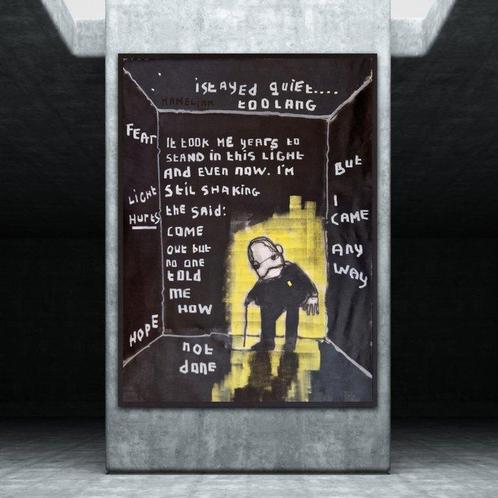 istayed quiet....
KAMELJAA
too lang
FEAr
It took ME yEArs to
stand in this Light
And EVEn now. I'm
stil shaking
the said:
COME
out but
no one
told
ME
HOW
not
done
Light
Hurts
HOPE
But
I
CAME
Any
WAY